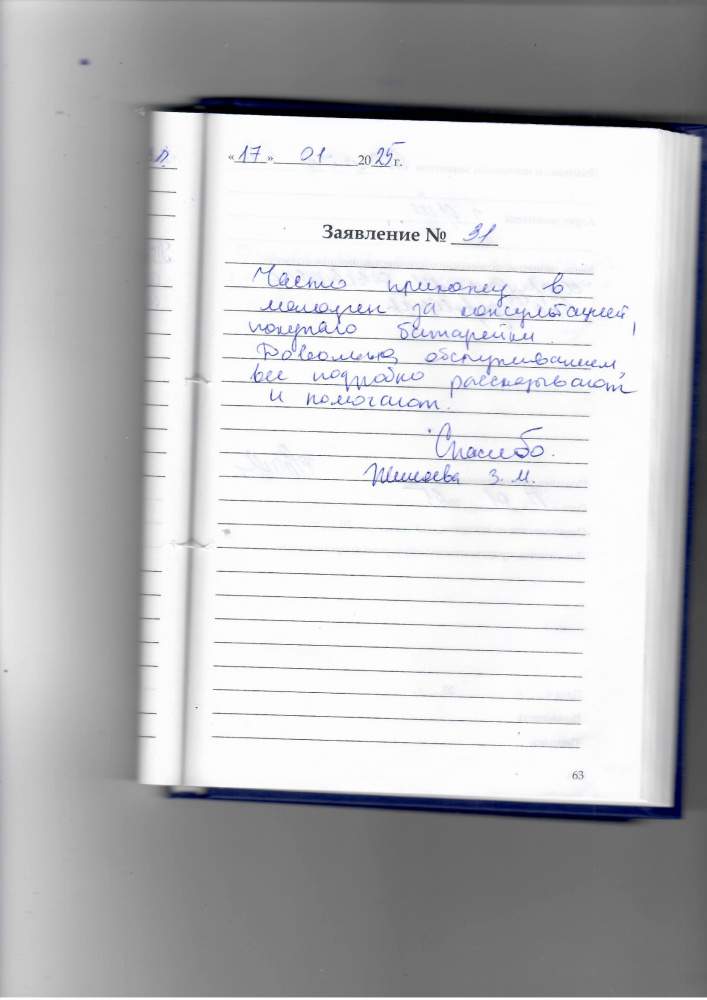 «17» 01 2025 г.
Заявление № 31
Часто прихожу в
магазин за консультацией,
покупаю батарейки.
Довольна обслуживанием,
все подробно рассказывают
и помогают.
Спасибо.
З. М.
63